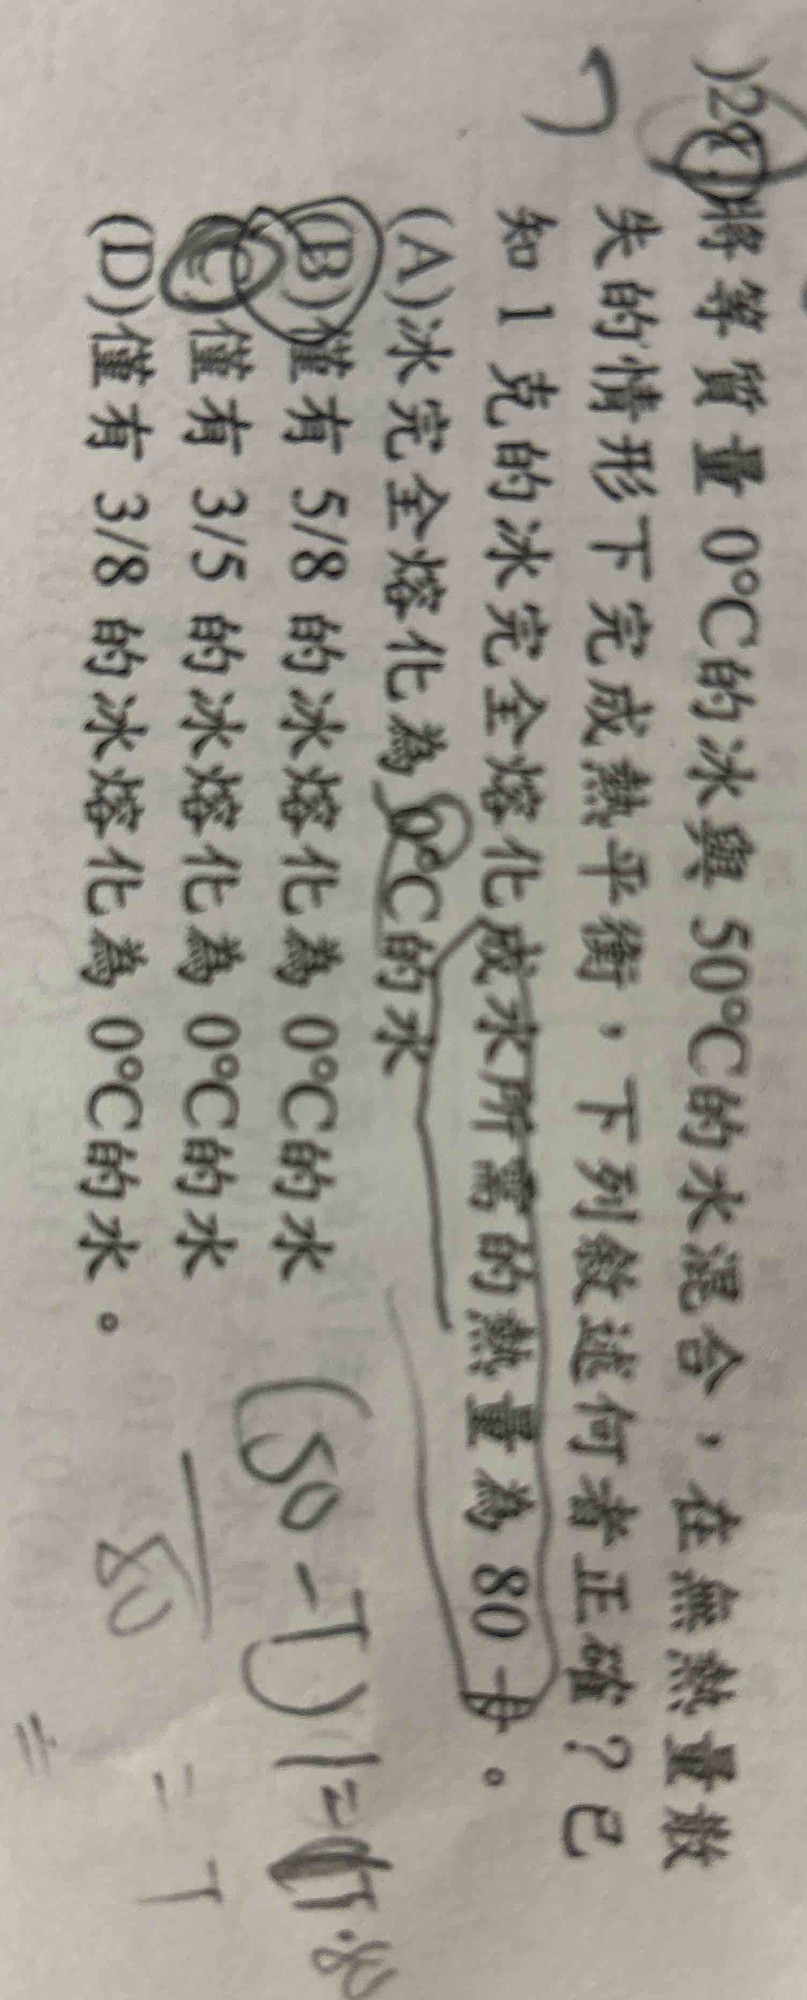 )28.將等質量 0°C的冰與 50°C的水混合，在無熱量散
失的情形下完成熱平衡，下列敘述何者正確？已
知 1 克的冰完全熔化成水所需的熱量為 80 卡。
(A)冰完全熔化為 0°C的水
(B)僅有 5/8 的冰熔化為 0°C的水
(C)僅有 3/5 的冰熔化為 0°C的水
(D)僅有 3/8 的冰熔化為 0°C的水。
(50-T)1=
80
=T
=